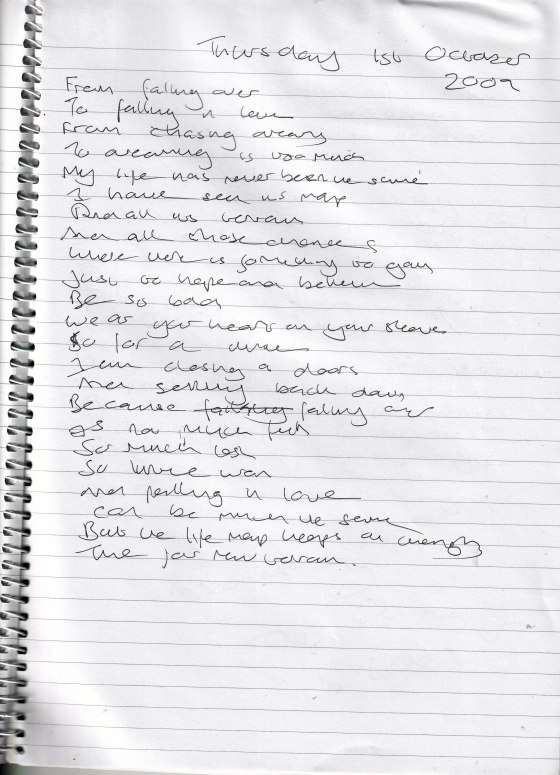 Thursday 1st October
2009
From falling over
To falling in love
From chasing
To dreaming is too much
My life has never been the same
I have seen its map
And all its terrain
And all those chances
Where there is something to gain
Just to hope and believe
Be so bad
Wear your heart on your sleeve
So for a while
I am closing a doors
And setting back down
Because falling over
Is too much fun
So much lost
So little won
And falling in love
Can be much the same
But the life map keeps on changing
Time for new terrain.